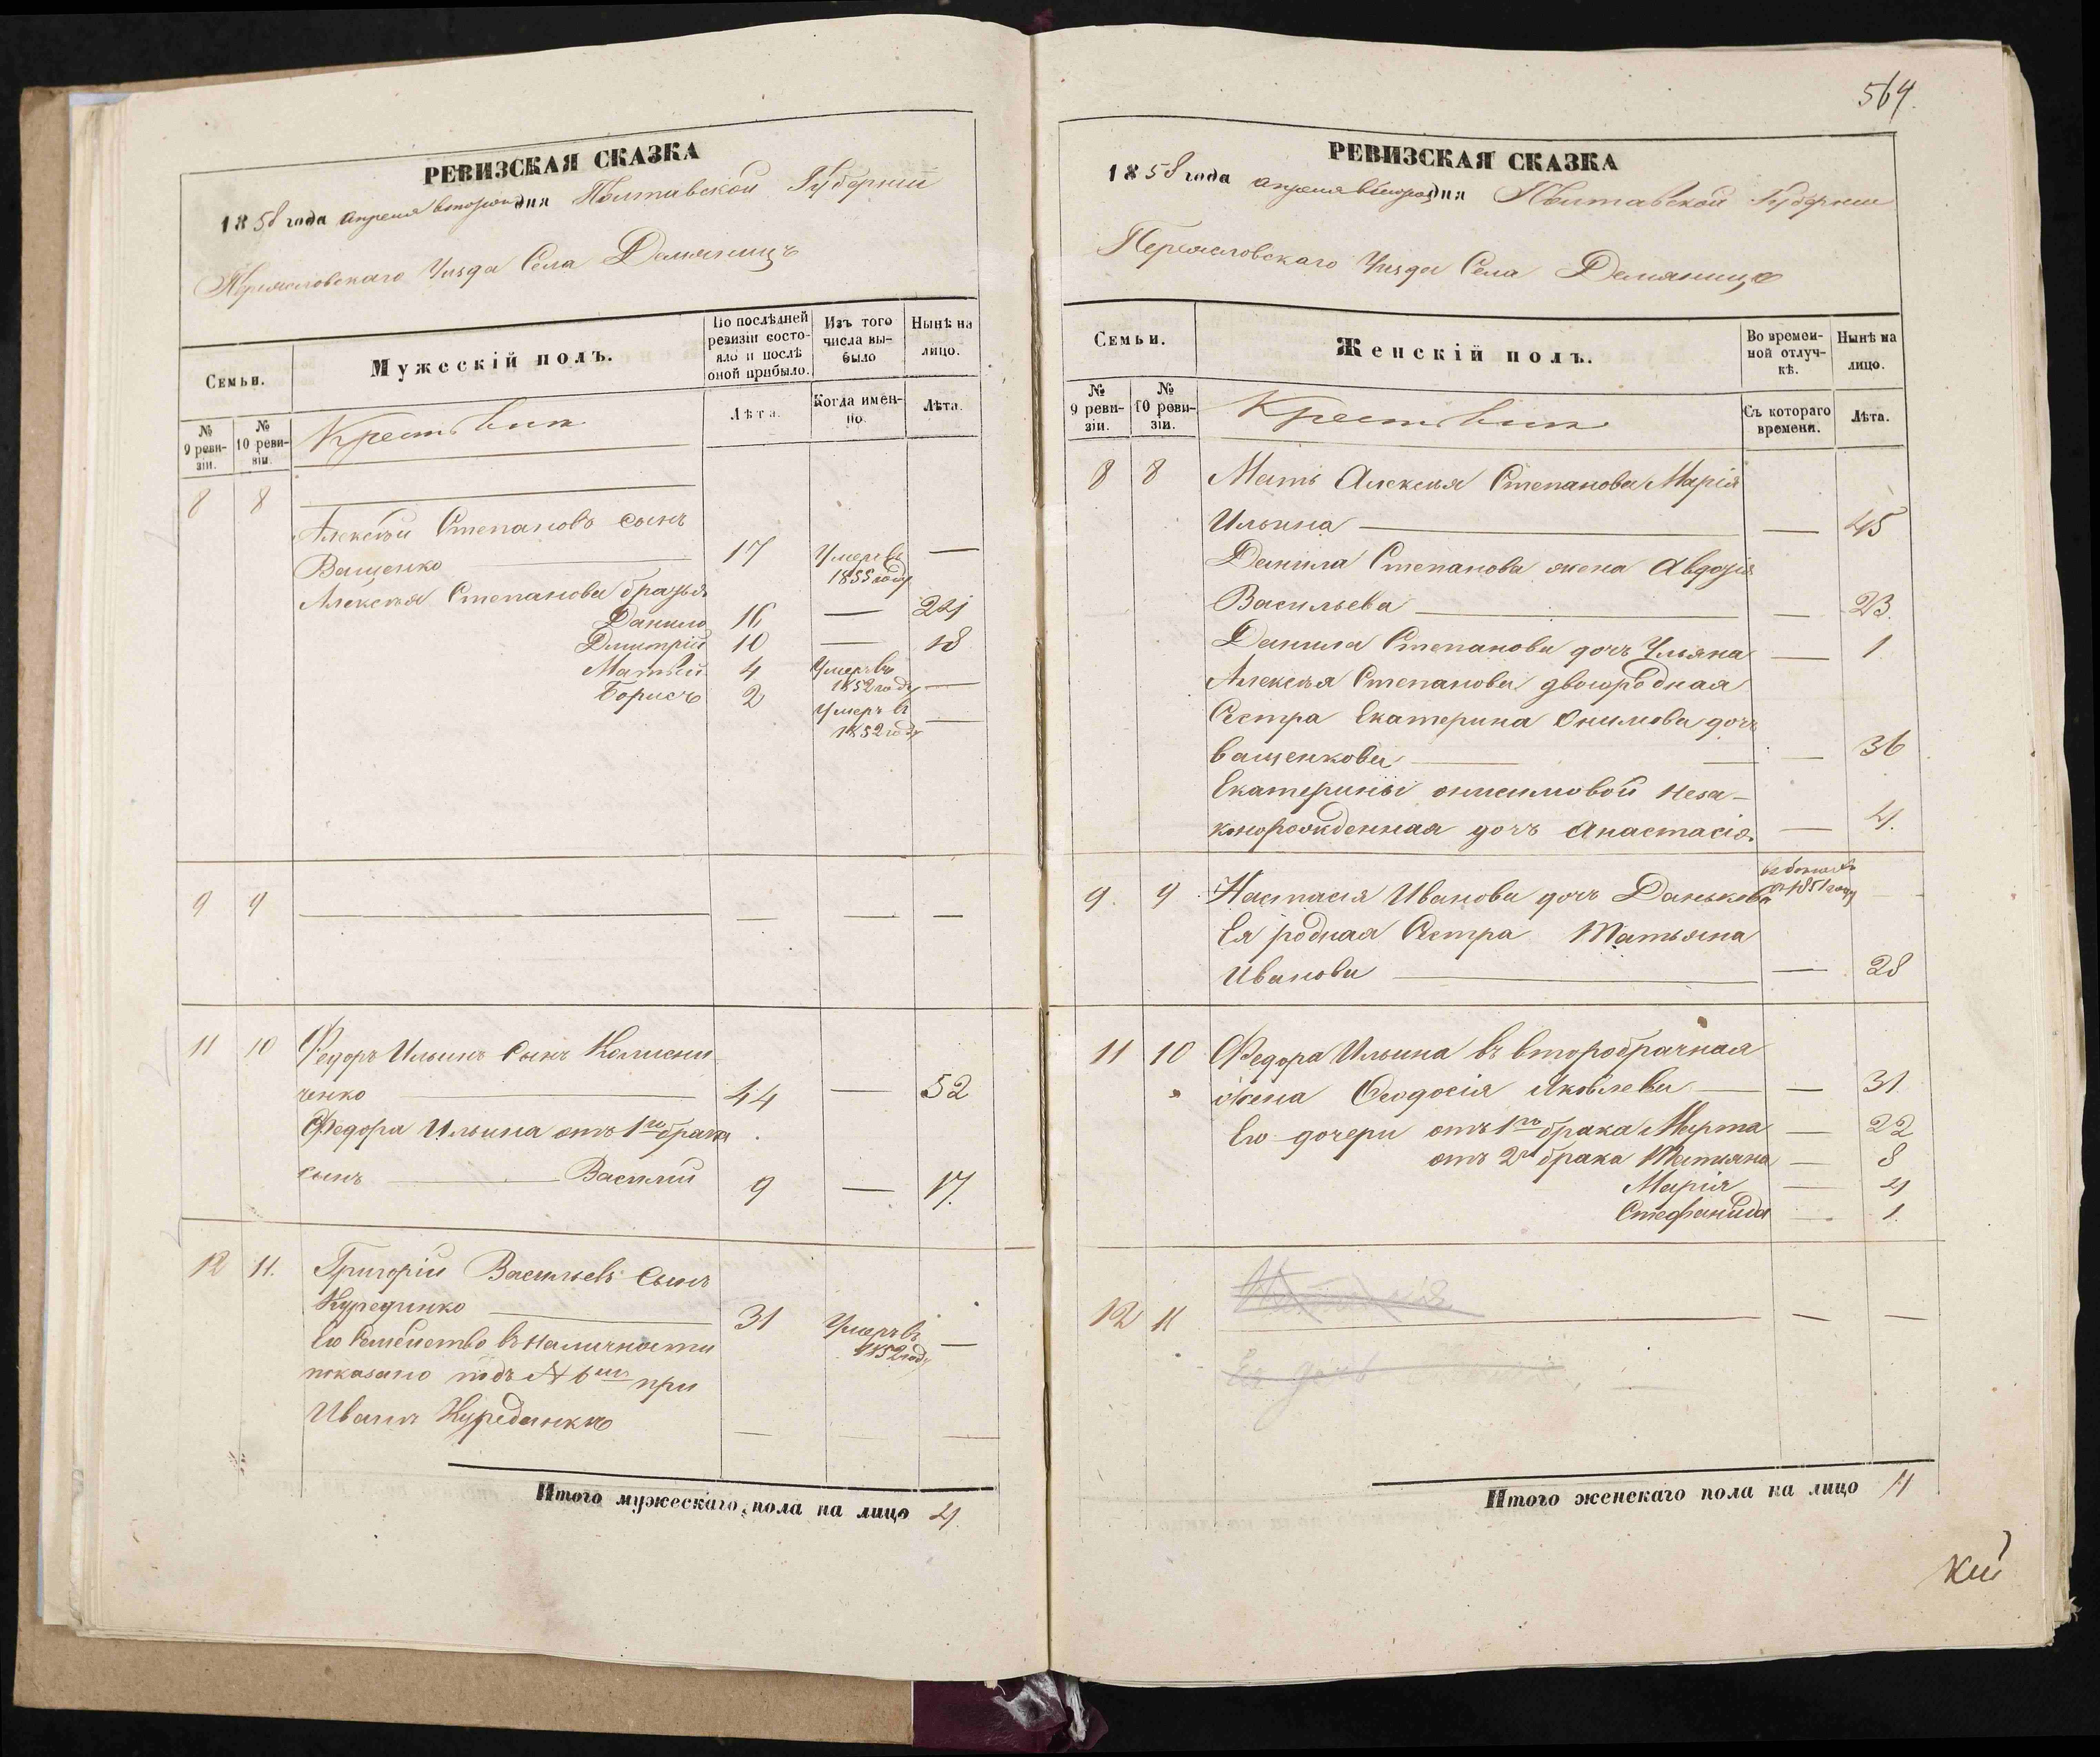 РЕВИЗСКАЯ СКАЗКА
1858 года апреля второго дня Полтавской Губернии
Переясловскаго Уезда Села Демяницъ
Семьи.
Мужескій полъ.
По послѣдней ревизіи состо-
яло и послѣ
оной прибыло.
Изъ того
числа вы-
было
Нынѣ на
лицо.
№
9 реви-
зіи.
№
10 реви-
зіи.
Крестьяне
Лѣта.
Когда имен-
но.
Лѣта.
8 8
Алексѣй Степановъ сынъ
Ващенко 17 Умеръ въ — 
1855 году
Алексѣя Степанова братья
Данило 16 — 24
Дмитрій 10 — 18
Матвѣй 4 Умеръ въ
1852 году —
Борисъ 2 Умеръ въ
1852 году —
9 9 — — — —
11 10 Федоръ Ильинъ Сынъ Колисни
ченко 44 — 52
Федора Ильина отъ 1го брака
сынъ Василий 9 — 17.
12 11. Григорій Васильевъ Сынъ
31 Умеръ въ
1852 году —
Его Семейство въ Наличности
показано подъ № 6мъ при
Иванѣ
Итого мужескаго пола на лицо 4.
564.
РЕВИЗСКАЯ СКАЗКА
1858 года апреля второго дня Полтавской Губернии
Переясловскаго Уезда Села Демяницъ
Семьи.
Женскій полъ.
Во времен-
ной отлуч-
кѣ.
Нынѣ на
лицо.
№
9 реви-
зіи.
№
10 реви-
зіи.
Крестьяне
Съ котораго
времени.
Лѣта.
8 8 Мать Алексѣя Степанова Марія
Ильина — 45
Данила Степанова жена Авдотія
Васильева — 23.
Данила Степанова дочь Ульяна — 1
Алексѣя Степанова двоюродная
Сестра Екатерина Онисимова дочь
Ващенкова — 36
Екатерины онисимовой Неза-
конорожденная дочь Анастасія — 4.
9. 9 Настасія Иванова дочь Данькова
въ 1851 году —
Ея родная Сестра Татьяна
Иванова — 28
11 10 Федора Ильина въ второбрачная
жена Феодосія Яковлева — 31
Его дочери отъ 1го брака Марта — 22
отъ 2го брака Татияна — 8
Марія — 4
Стефанида — 1.
12 11 — —
Ея дочь
Итого женскаго пола на лицо 11
кій